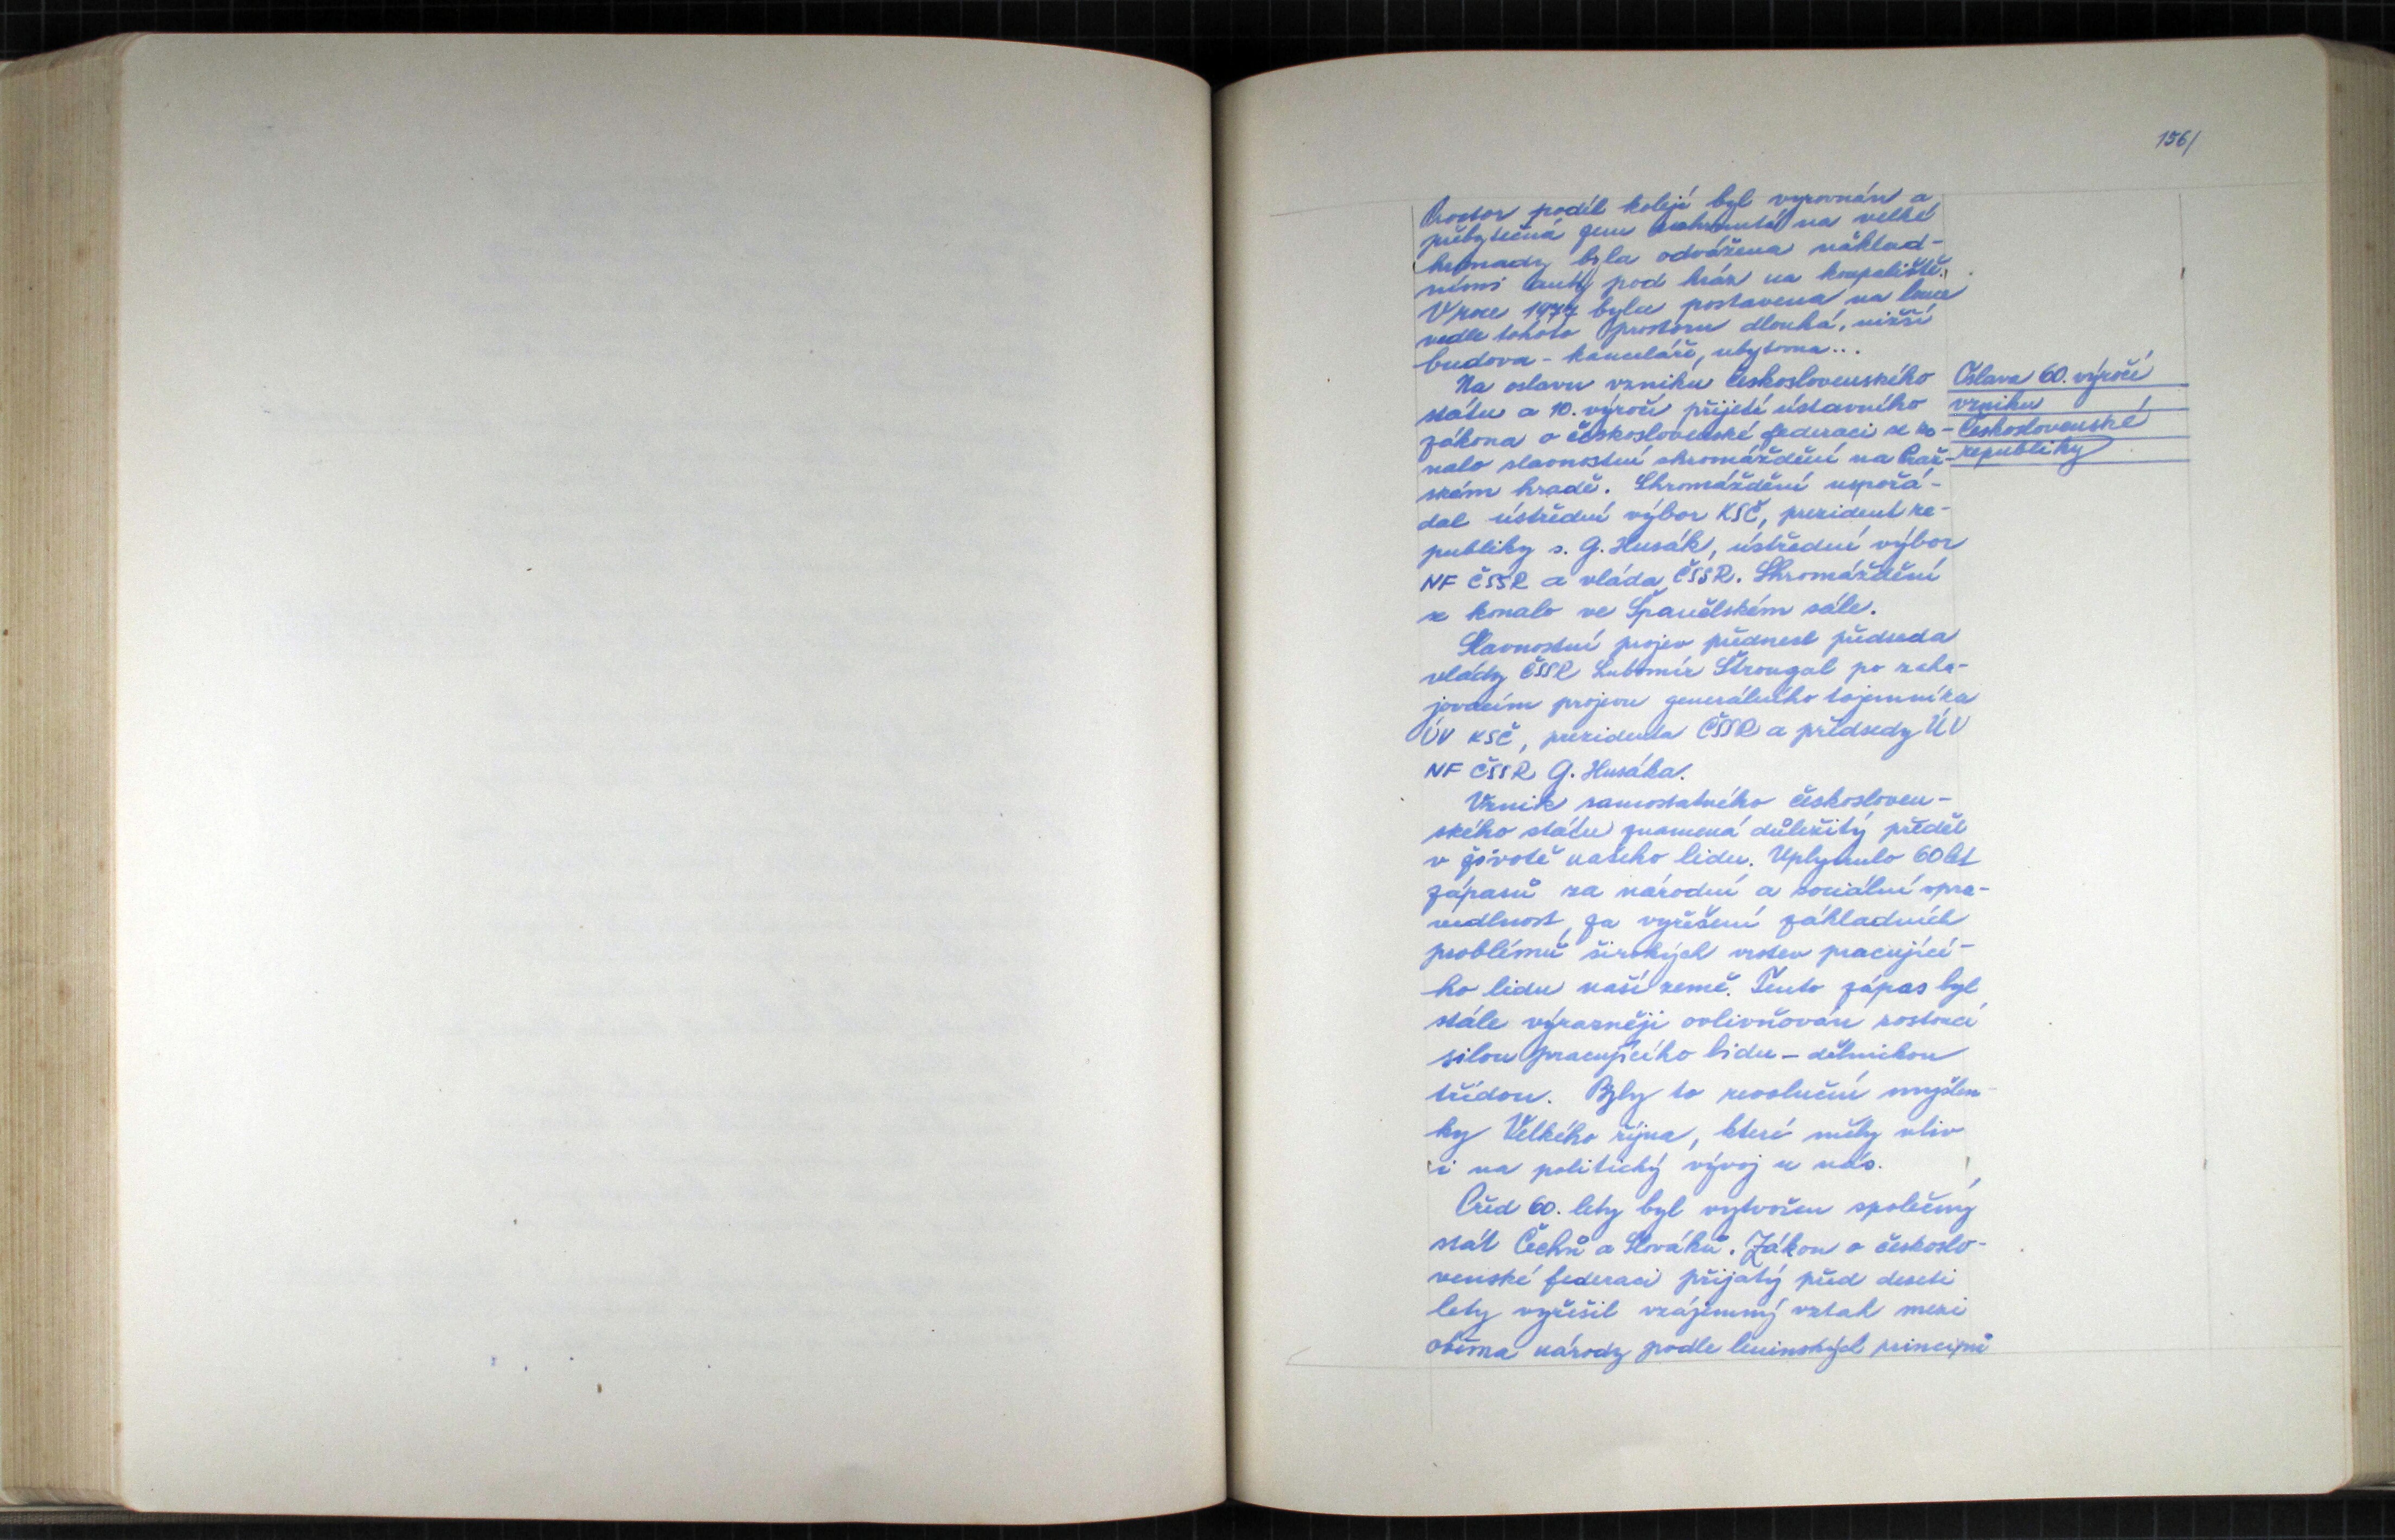 156/
Prostor podél kolejí byl vyrovnán a
přebytečná zem nahrnutá na velké
hromady byla odvážena náklad-
ními auty pod hráz na koupaliště.
V roce 1977 byla postavena na louce
vedle tohoto prostoru dlouhá, nižší
budova - kanceláře, ubytovna...
Na oslavu vzniku československého
státu a 10. výročí přijetí ústavního
zákona o československé federaci se ko-
nalo slavnostní shromáždění na Praž-
ském hradě. Shromáždění uspořá-
dal ústřední výbor KSČ, prezident re-
publiky s. G. Husák, ústřední výbor
NF ČSSR a vláda ČSSR. Shromáždění
se konalo ve Španělském sále.
Slavnostní projev přednesl předseda
vlády ČSSR Lubomír Štrougal po zaha-
jovacím projevu generálního tajemníka
ÚV KSČ, prezidenta ČSSR a předsedy ÚV
NF ČSSR G. Husáka.
Vznik samostatného českosloven-
ského státu znamená důležitý předěl
v životě našeho lidu. Uplynulo 60 let
zápasů za národní a sociální spra-
vedlnost, za vyřešení základních
problémů širokých vrstev pracující-
ho lidu naší země. Tento zápas byl
stále výrazněji ovlivňován rostoucí
silou pracujícího lidu - dělnickou
třídou. Byly to revoluční myšlen-
ky Velkého října, které měly vliv
i na politický vývoj u nás.
Před 60. lety byl vytvořen společný
stát Čechů a Slováků. Zákon o českoslo-
venské federaci přijatý před deseti
lety vyřešil vzájemný vztah mezi
oběma národy podle leninských principů
Oslava 60. výročí
vzniku
Československé
republiky